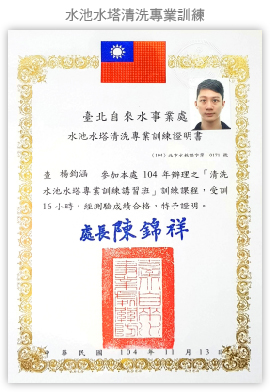 水池水塔清洗專業訓練
臺北自來水事業處
水池水塔清洗專業訓練證明書
查 楊鈞涵 參加本處104年辦理之「清洗
水池水塔專業訓練講習班」訓練課程，受訓
15小時，經測驗成績合格，特予證明。
處長陳錦祥
中華民國 104 年 11 月 13 日